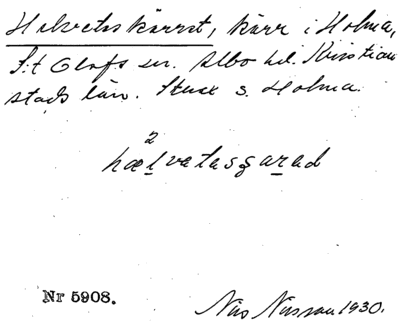 Helveteskärret, kärr i Holma,
S:t Olofs sn. Albo hd. Kristian
stads län. Strax s. Holma.
2
Nr 5908. Nils Nilsson 1930.